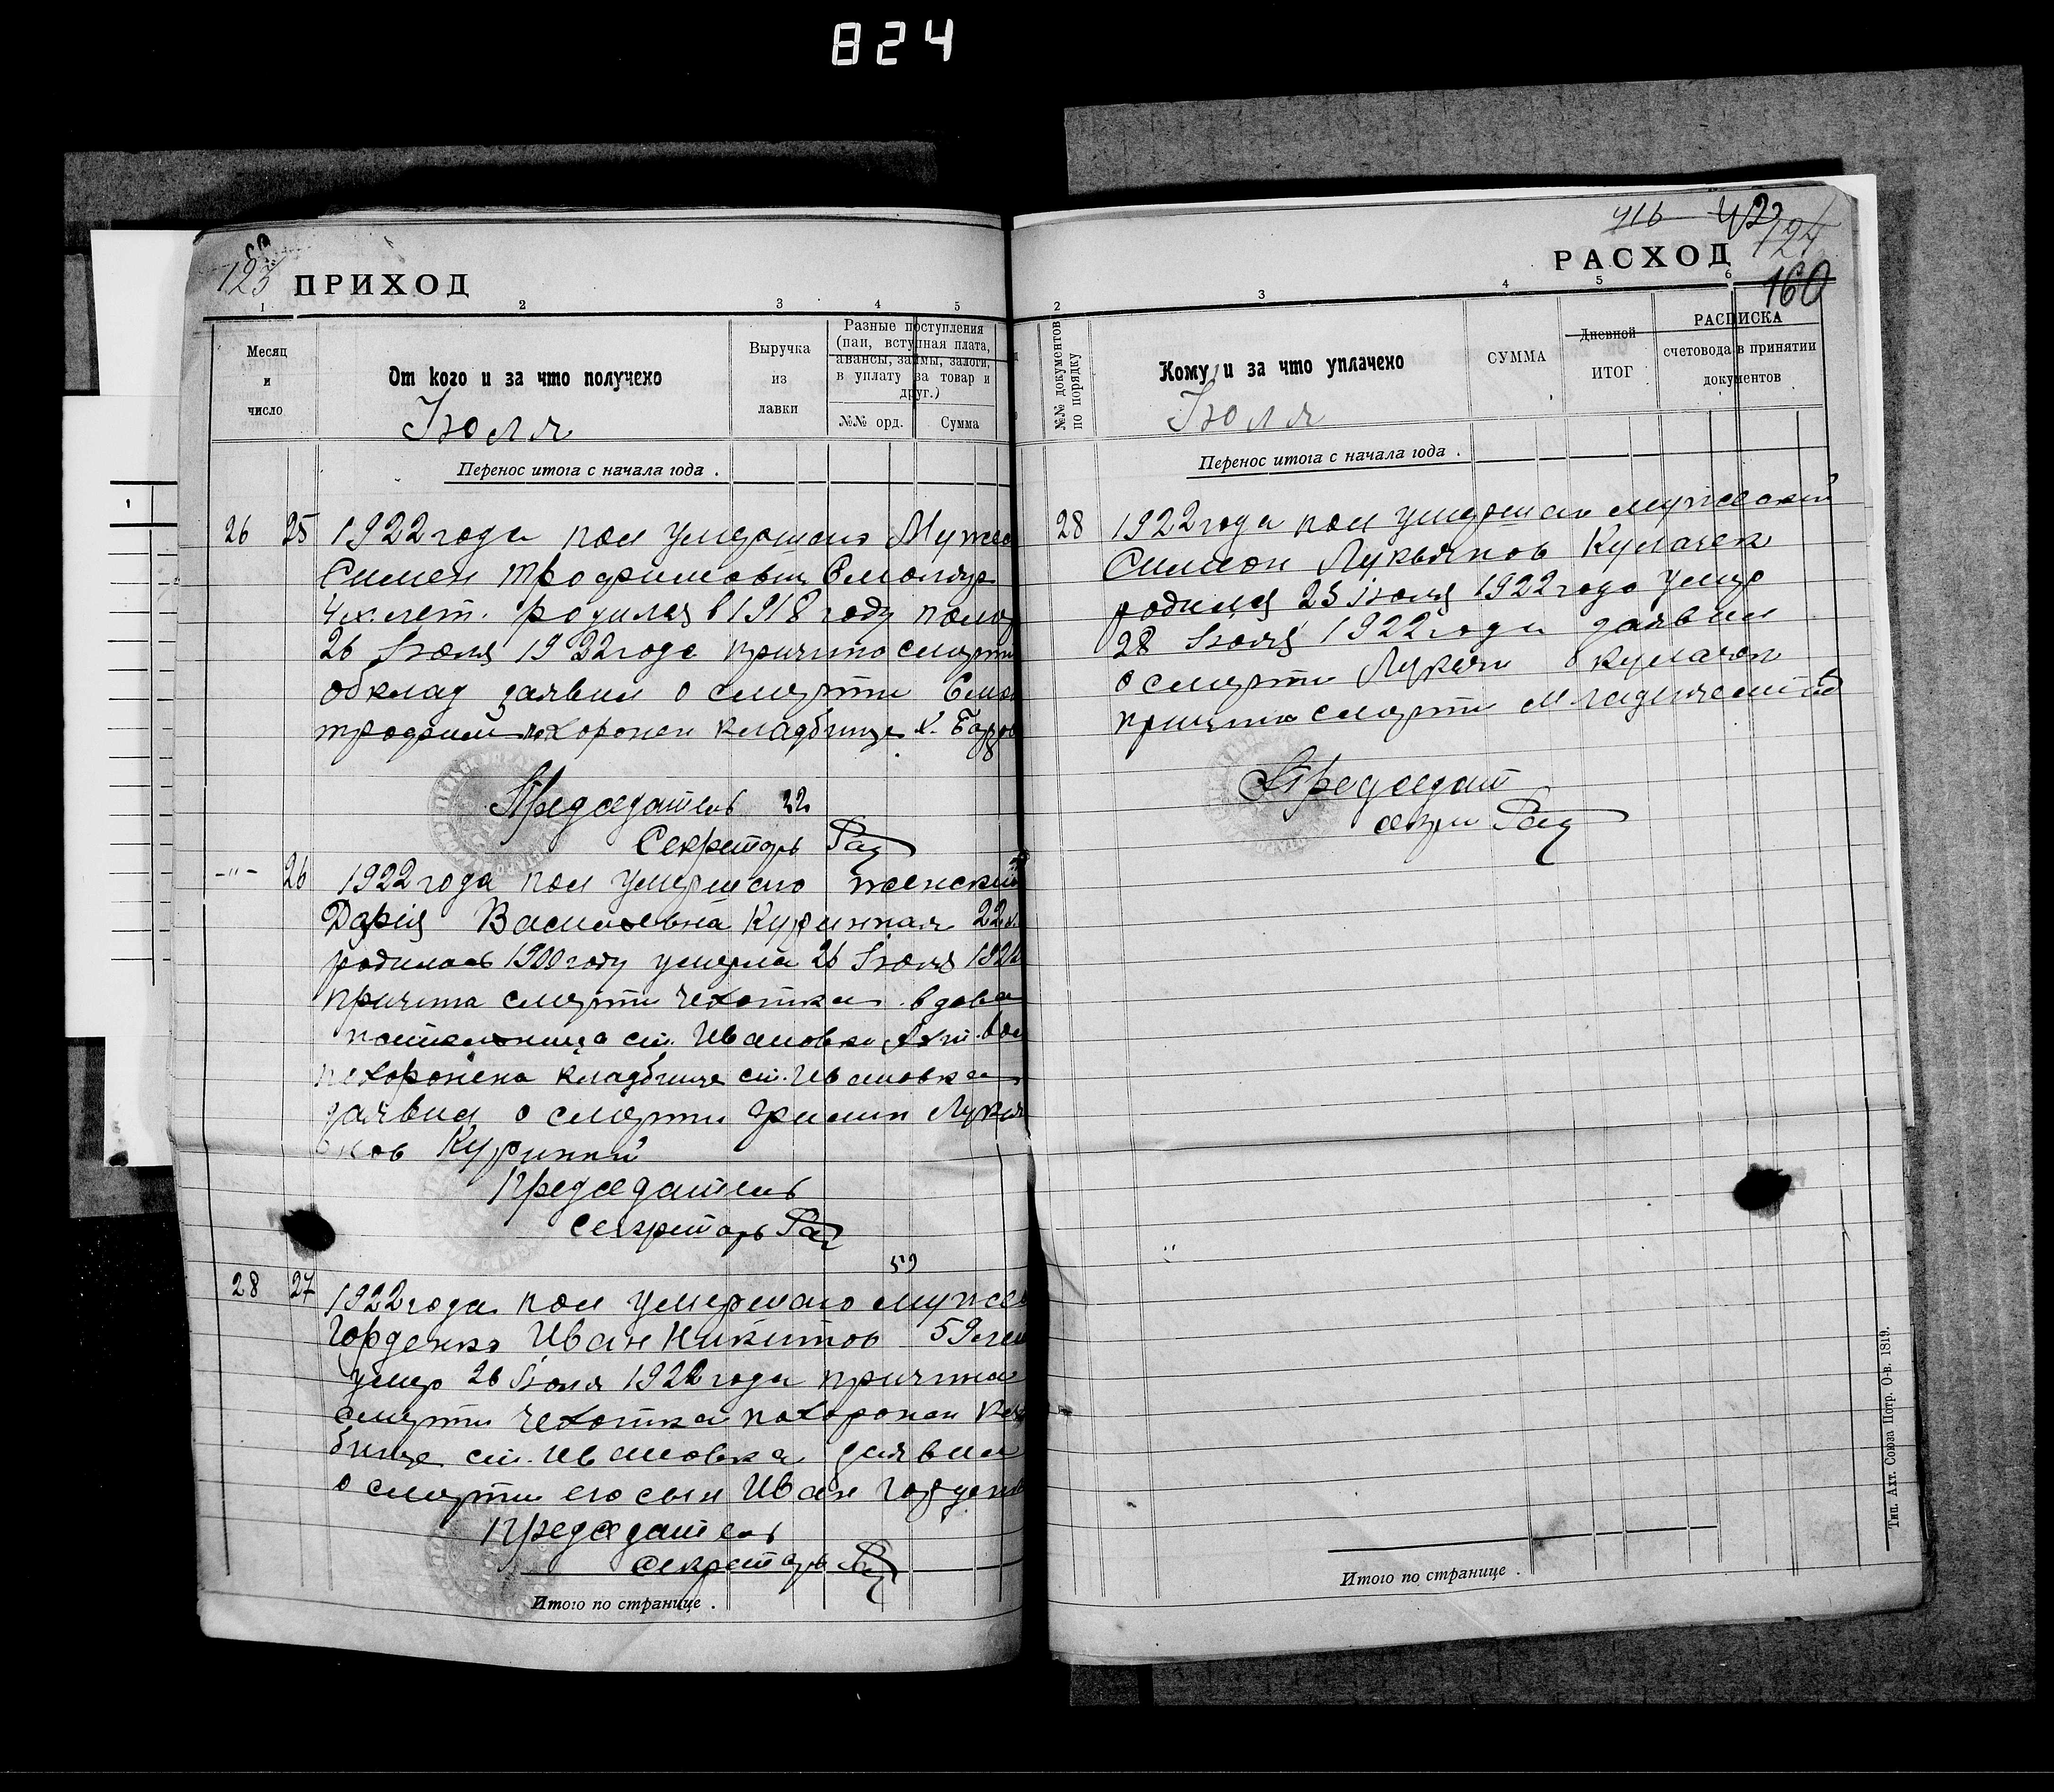 824
123
ПРИХОД
1 2 3 4 5
Месяц
и
число
От кого и за что получено
Выручка
из
лавки
Разные поступления
(паи, вступная плата,
авансы, займы, залоги,
в уплату за товар и
друг.)
№№ орд. Сумма
Июля
Перенос итога с начала года .
26 25 1922 года пол умершаго Мужес
Симен трофимович
4х. лет. родился в 1918 году
26 Июля 1922 года причина смерти
заявил о смерти
трофим похоронен кладбище х.
Председатель
Секретарь
-"- 26 1922 года пол умершаго женский
Дарія Василевна Куринная 22
родилась 1900 году умерла 26 Июля 1922
причина смерти чехотка вдова
ст. Ивановки
похоронена кладбище ст. Ивановка
заявил о смерти Филип Лукя
нов Куринный
Председатель
Секретарь
59
28 27 1922 года пол умершаго мужес
Горденко Иван Никитов 59 лет
умер 26 Июля 1922 года причина
смерти чехотка похоронен клад
бище ст. Ивановка заявил
о смерти его сын Иван Горденко
Председатель
секретарь
Итого по странице .
416
124
РАСХОД
160
2 3 4 5 6
№№ документов
по порядку
Кому и за что уплачено
СУММА
Дневной
ИТОГ
РАСПИСКА
счетовода в принятии
документов
Июля
Перенос итога с начала года .
28 1922 года пол умершаго мужеский
Симион Лукьянов Кулачек
родился 25 Июля 1922 года умер
28 Июля 1922 года заявил
о смерти Лукян Кулачек
причина смерти младенческий
Председат
секре
Итого по странице .
Тип. Акт. Союза Потр. О-в. 1819.